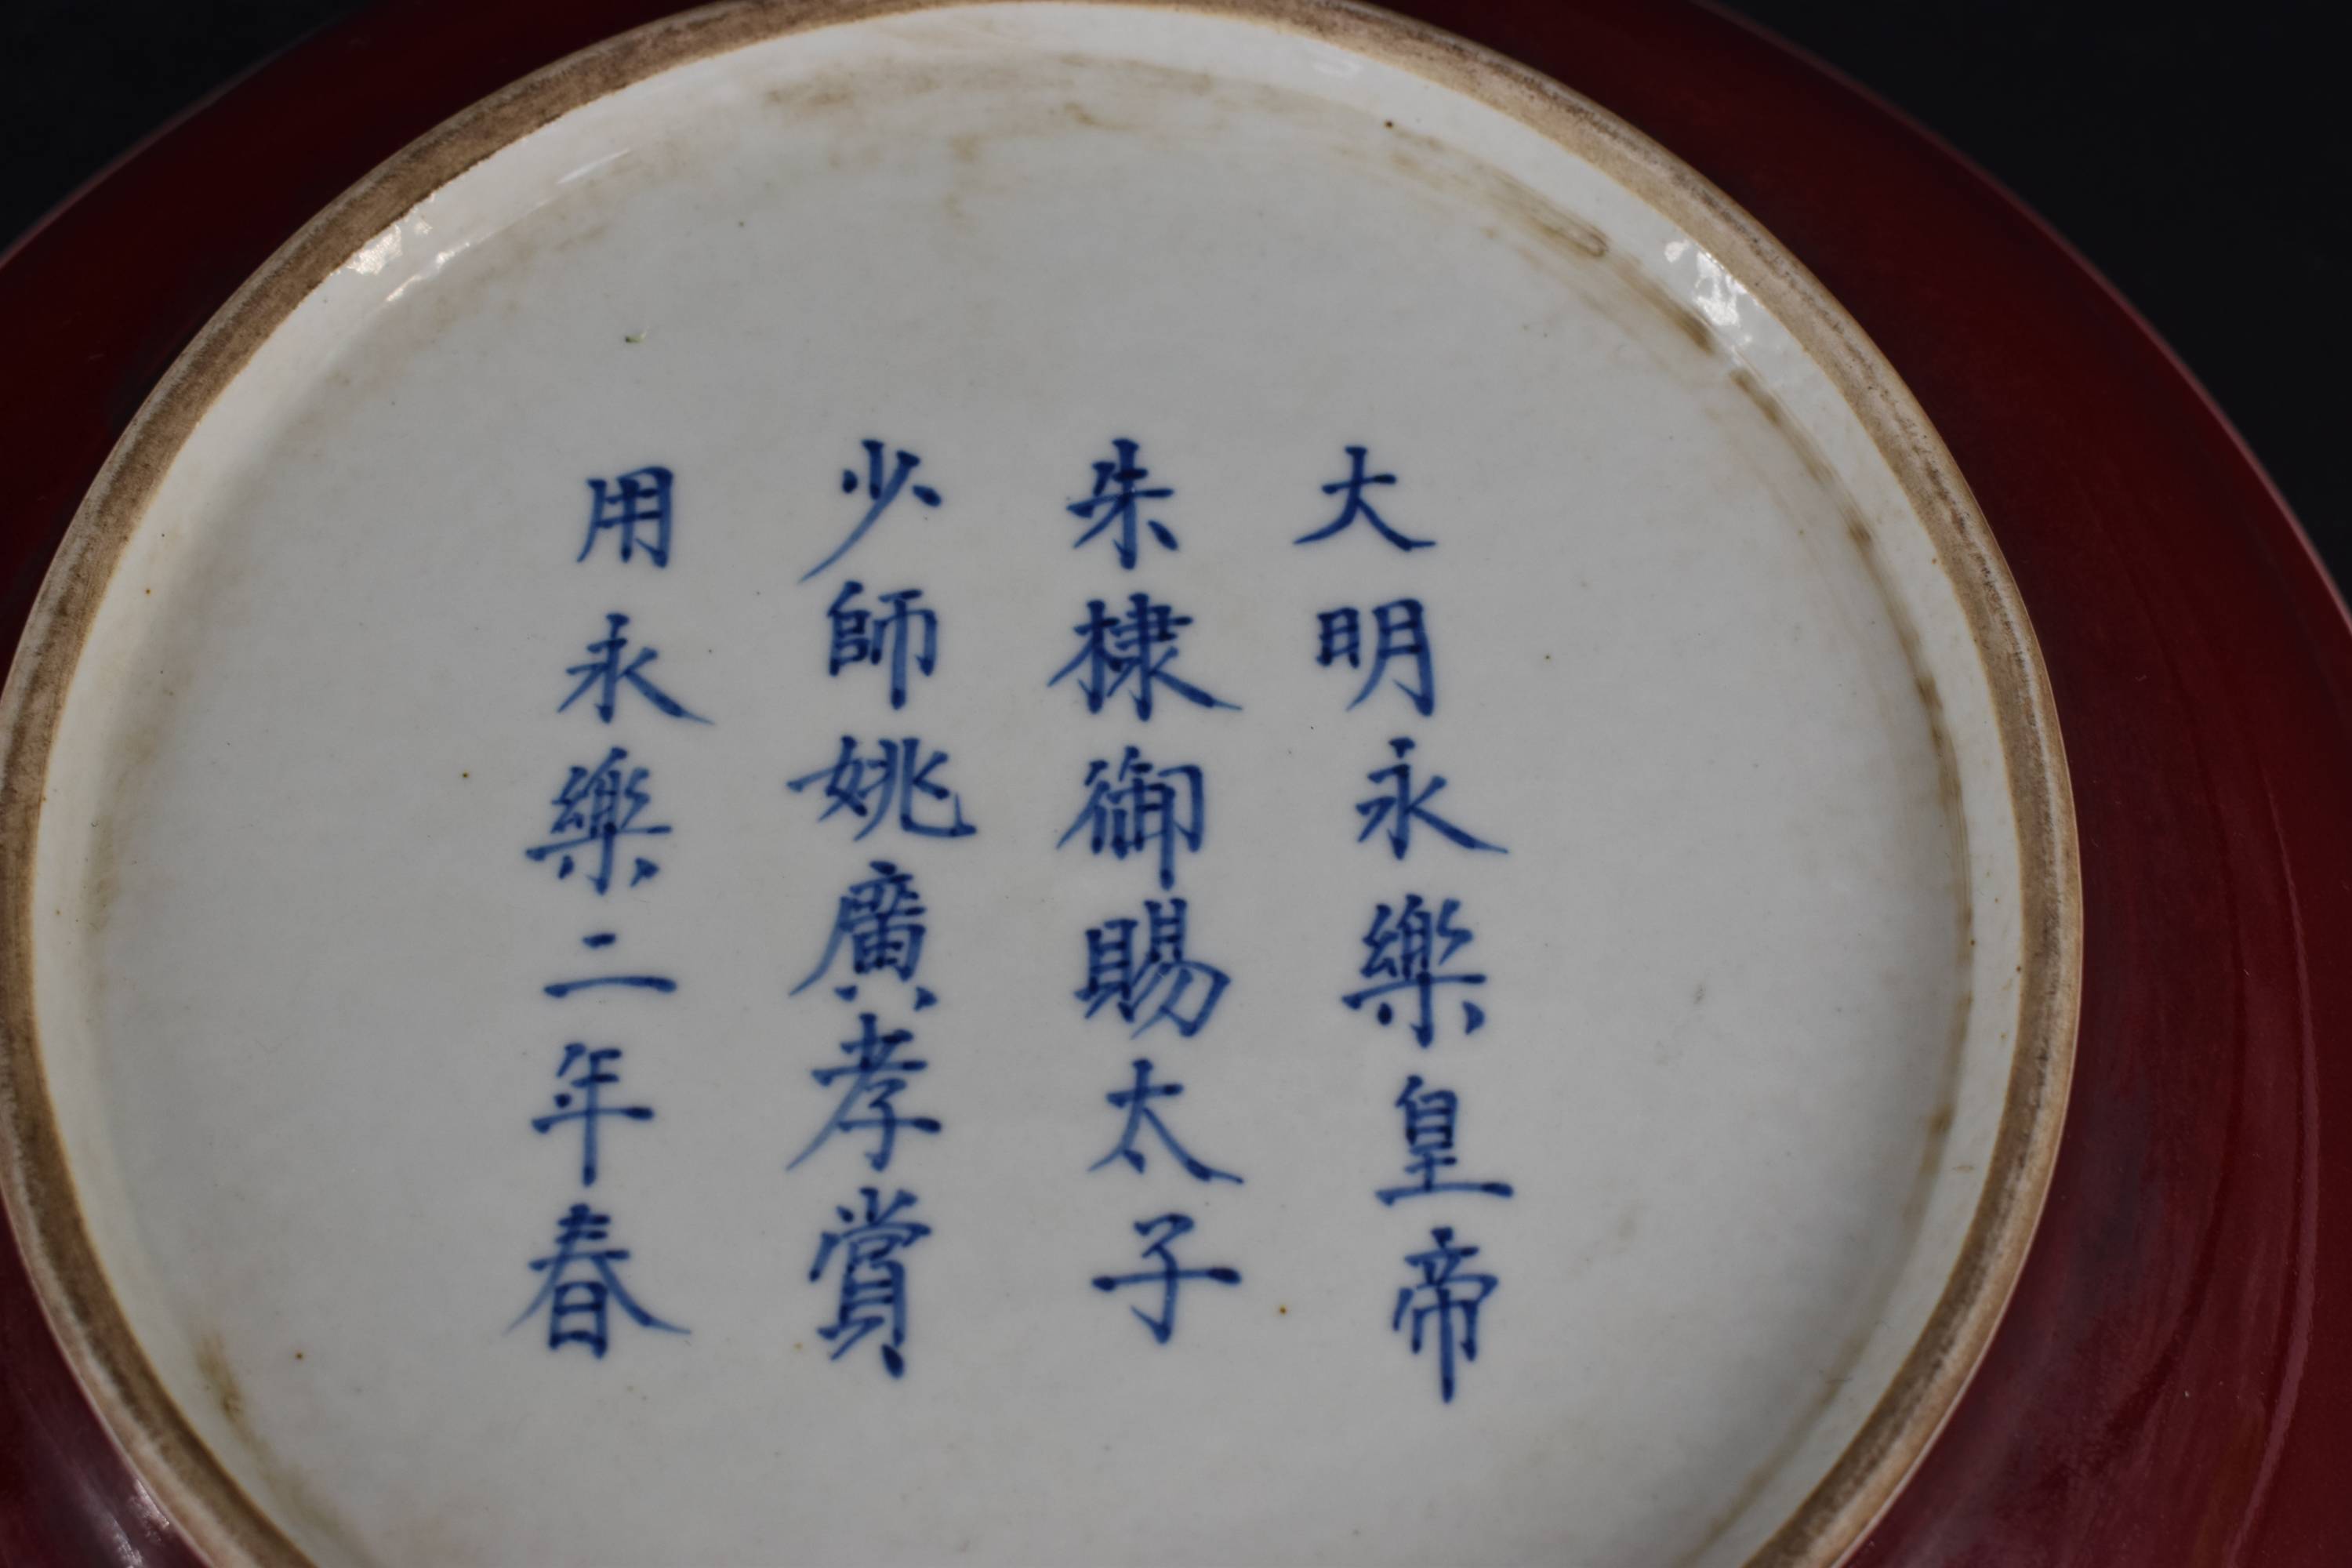 大明永樂皇帝
朱棣御賜太子
少師姚廣孝賞
用永樂二年春